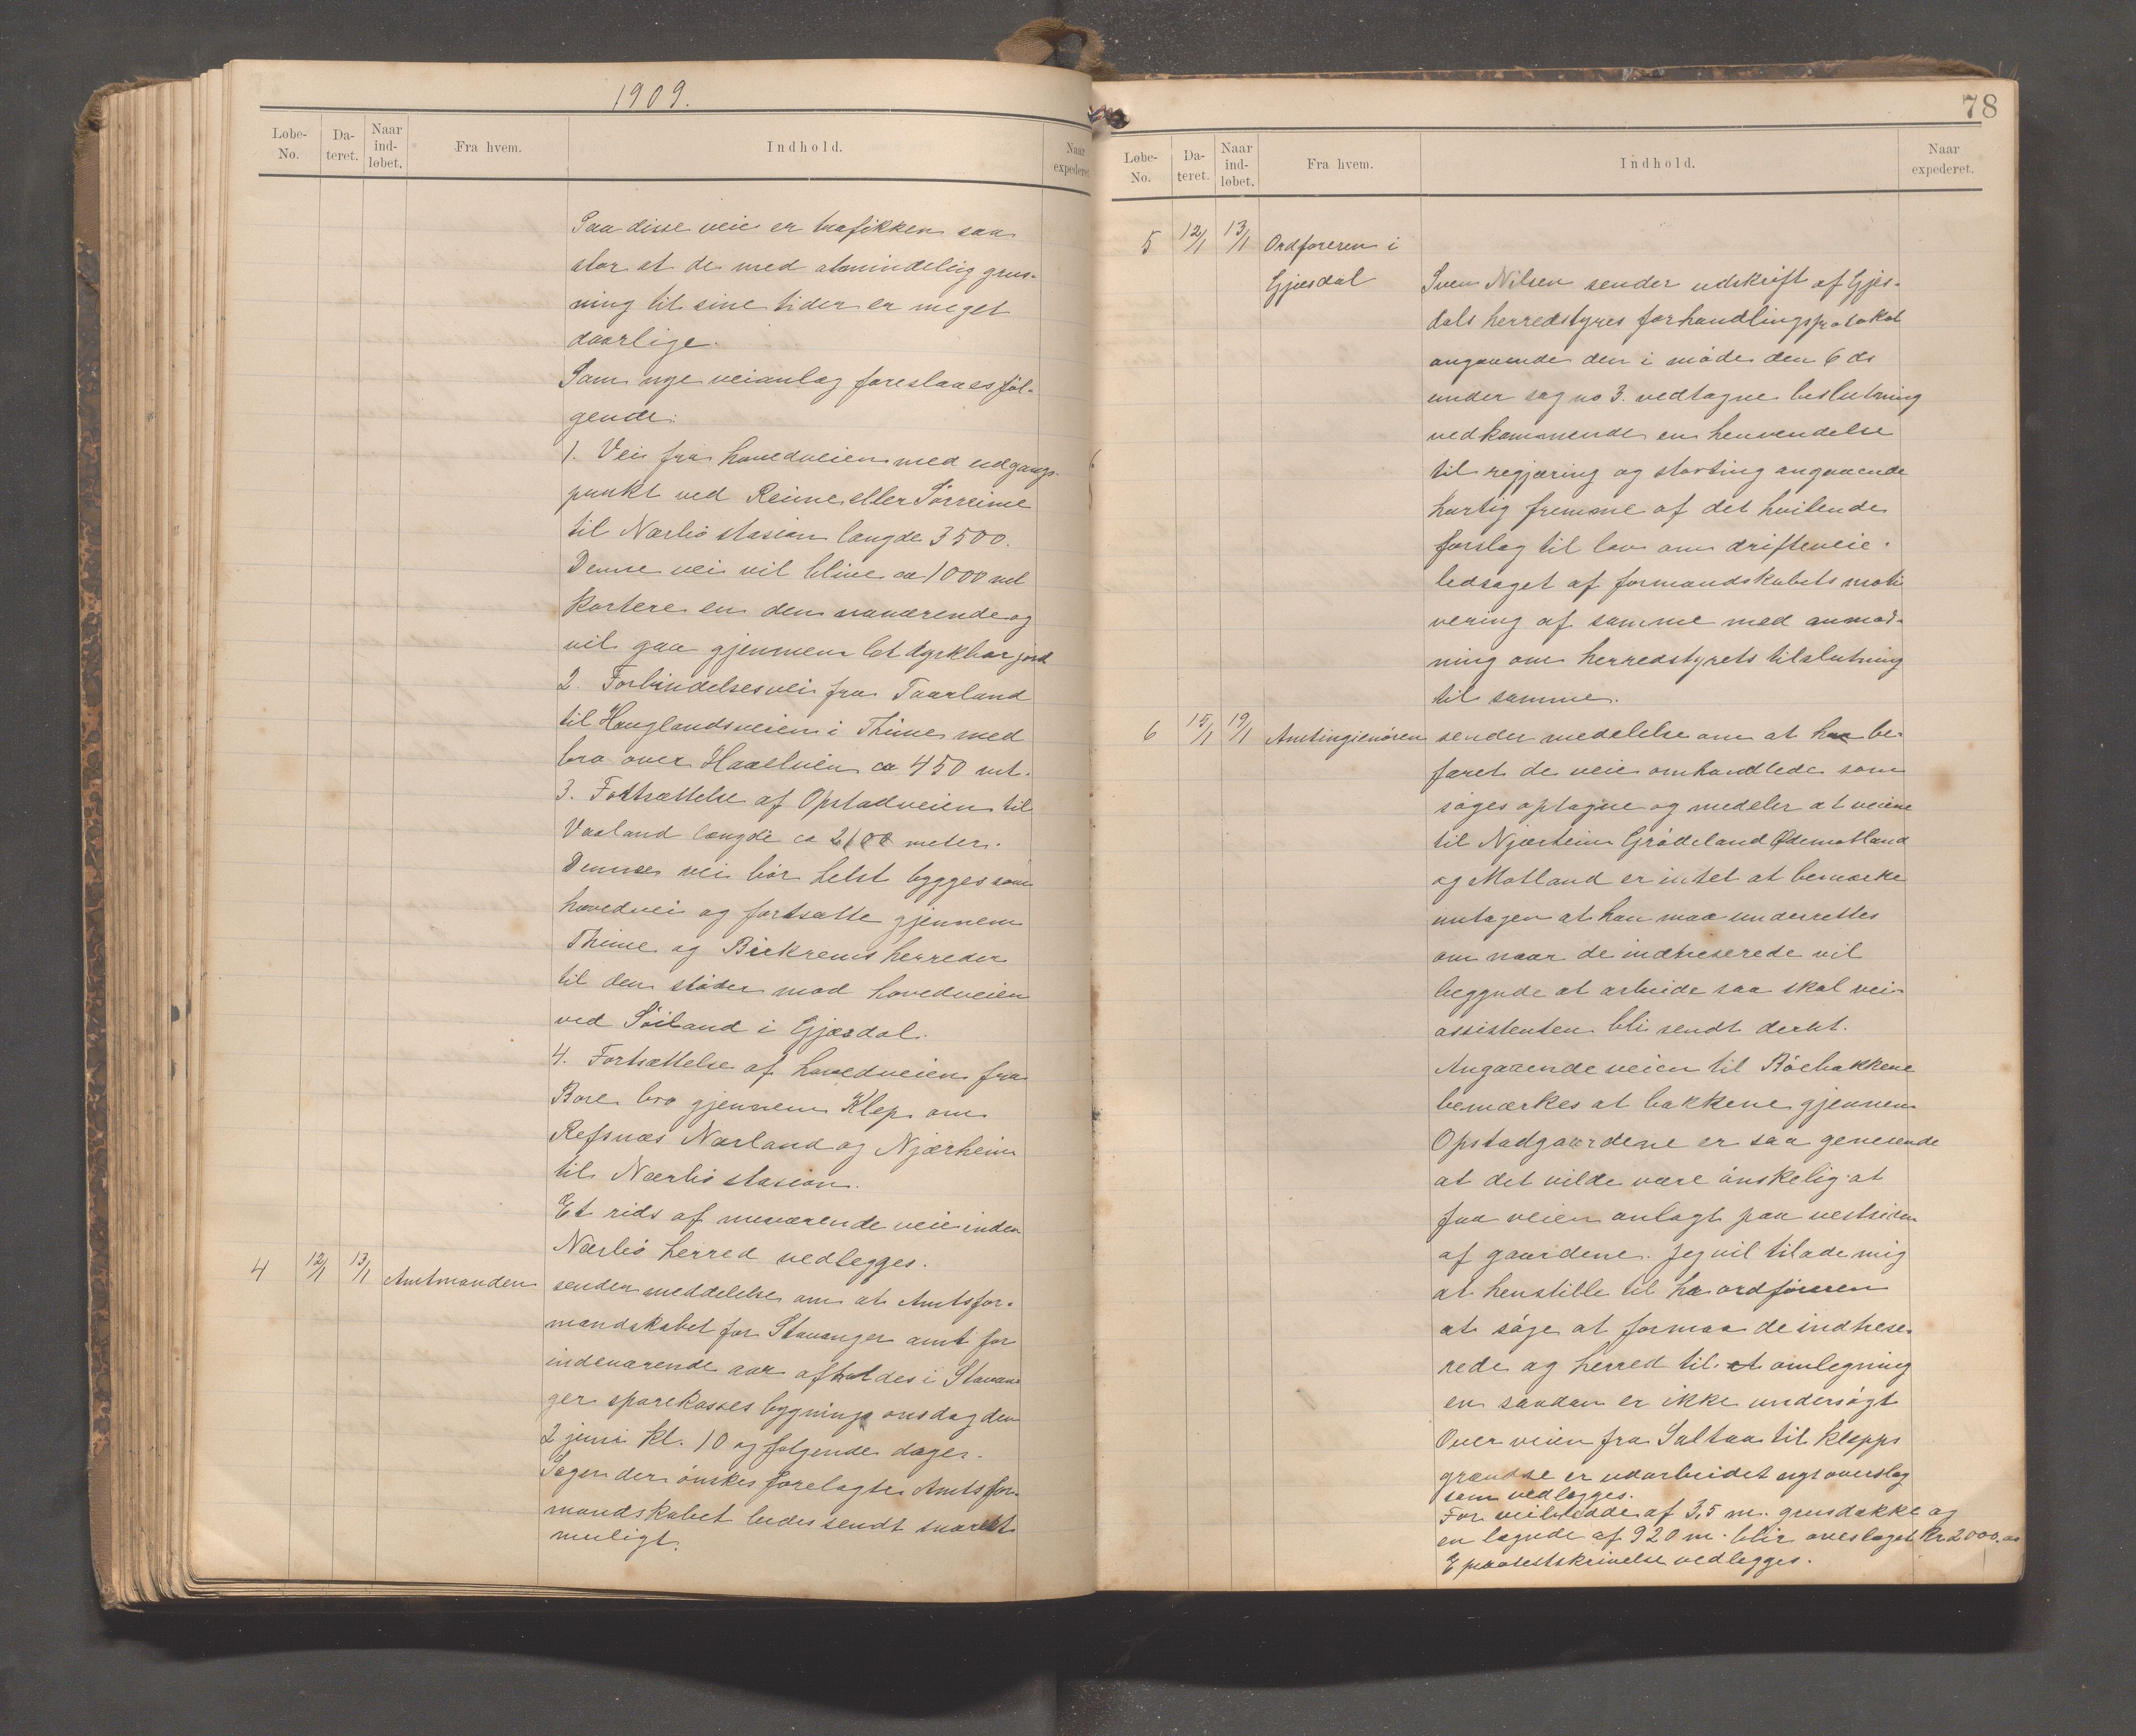 1909.
Løbe-No. Da-teret. Naar ind-løbet. Fra hvem. Indhold. Naar expederet.
Paa disse veie er trafikken saa
stor at de med almindelig grus-
ning til sine tider er meget
daarlige.
Som nye veianlæg foreslaaes føl-
gende:
1. Vei fra hovedveien med udgangs-
punkt ved Reime eller Sørreime
til Nærbø stasion længde 3500.
Denne vei vil blive ca 1000 mt
kortere en den nuværende og
vil gaa gjennem let dyrkbar jord
2. Forbindelsesvei fra Taarland
til Hauglandsveien i Thime med
bro over Haaelven ca 450 mt.
3. Fortsættelse af Opstadveien til
Vaaland længde ca 2100 meter.
Denne vei bør helst bygges som
hovedvei og fortsætte gjennem
Thime og Birkrems herreder
til den støder mod hovedveien
ved Søiland i Gjæsdal.
4. Fortsættelse af hovedveien fra
Bore bro gjennem Klep om
Refsnæs Nærland og Njærheim
til Nærbø stasion.
Et rids af nuværende veie inden
Nærbø herred vedlegges.
4 12/1 13/1 Amtmanden sender meddelelse om at Amtsfor-
mandskabet for Stavanger amt for
indeværende aar afholdes i Stavan-
ger sparekasses bygning onsdag den
2 juni kl. 10 og følgende dager.
Sager der ønskes forelagte Amtsfor-
mandskabet bedes sendt snarest
muligt.
78
Løbe-No. Da-teret. Naar ind-løbet. Fra hvem. Indhold. Naar expederet.
5 12/1 13/1 Ordføreren i
Gjæsdal Sven Nilsen sender udskrift af Gjes-
dals herredstyres forhandlingsprotokol
angaaende den i møde den 6 ds
under sag no 3. vedtagne beslutning
vedkommende en henvendelse
til regjæring og storting angaaende
hurtig fremme af det hvilende
forslag til lov om drifteveie.
ledsaget af formandskabets moti
vering af samme med anmod-
ning om herredstyrets tilslutning
til samme.
6 15/1 19/1 Amtingieniøren sender medelelse om at ha be-
faret de veie omhandlede som
søges optagne og medeler at veiene
til Njærheim Grødeland Ødemotland
og Motland er intet at bemærke
untagen at han maa underrettes
om naar de indtreserede vil
beggynde at arbeide saa skal vei-
assistenten bli sendt derht.
Angaaende veien til Bøebakkene
bemærkes at bakkene gjennem
Opstadgaardene er saa generende
at det vilde være ønskelig at
faa veien anlagt paa vestsiden
af gaardene. Jeg vil tilade mig
at henstille til hr ordføreren
at søge at formaa de indtrese-
rede og herred til et omlegning
en saadan er ikke undersøgt
Over veien fra Saltaa til Klepps
grændse er udarbeidet nyt overslag
som vedlegges.
For veibredde af 3,5 m. grusdække og
en lægnde af 920 m. blir overslaget kr 2000,00
E protestskrivelse vedlegges.